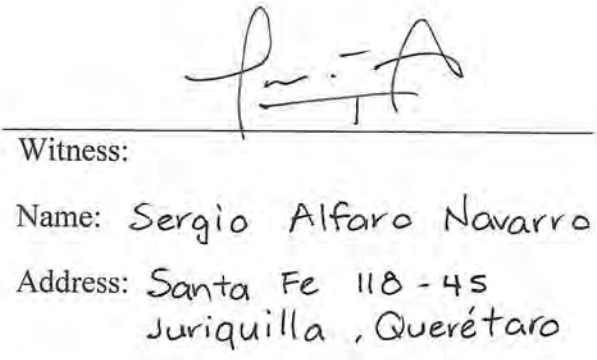 Witness:
Name: Sergio Alfaro Navarro
Address: Santa Fe 118-45
Juriquilla, Querétaro